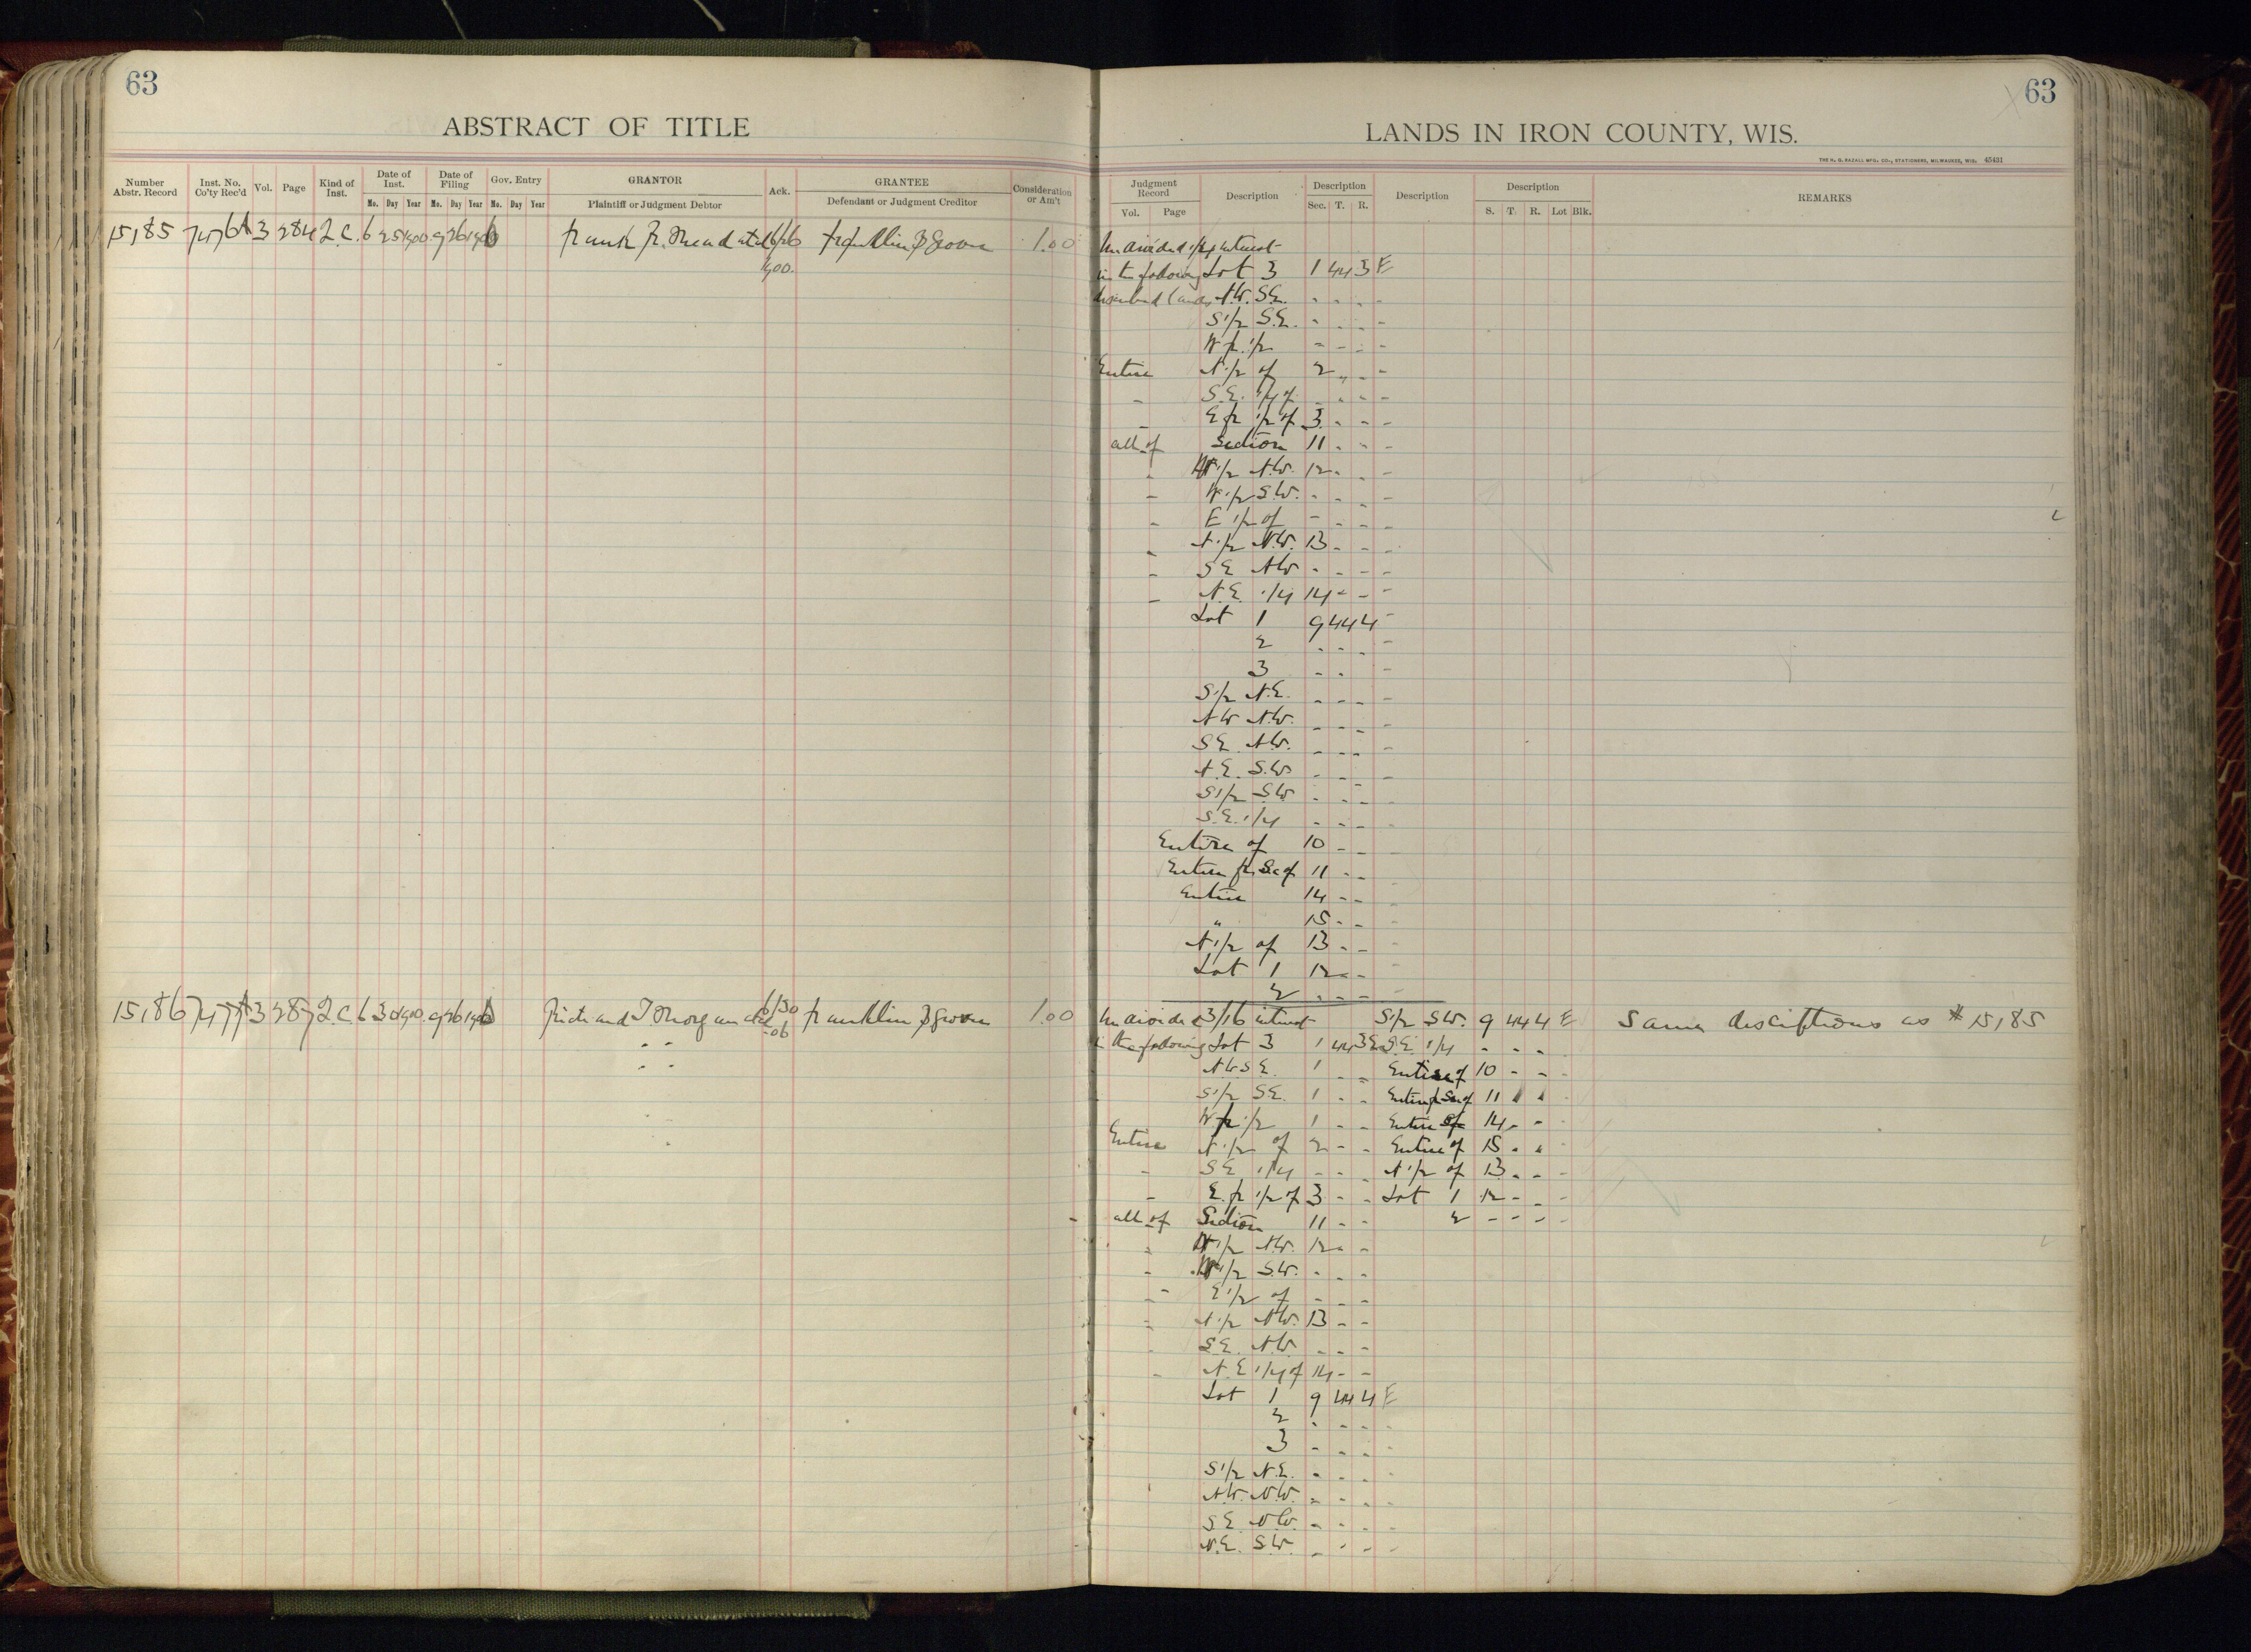 63
ABSTRACT OF TITLE
Number Abstr. Record
Inst. No. Co'ty Rec'd
Vol.
Page
Kind of Inst.
Date of Inst.
Mo. Day Year
Date of Filing
Mo. Day Year
Gov. Entry
Mo. Day Year
GRANTOR
Plaintiff or Judgment Debtor
Ack.
GRANTEE
Defendant or Judgment Creditor
Consideration or Am't
15185 3 284 Q.C. 6 25 1900 9 26 1906 Frank R. 6/26 1900. Franklin 1.00
15186 3 287 Q.C. 6 30 1900 9 26 1906 Morgan 6/30 Franklin 1.00
63
LANDS IN IRON COUNTY, WIS.
THE H. G. RAZALL MFG. CO., STATIONERS, MILWAUKEE, WIS. 45431
Judgment Record
Vol. Page
Description
Description
Sec. T. R.
Description
Description
S. T. R. Lot Blk.
REMARKS
Undivided 1/4 interest
in the following Lot 3 1 44 3 E
described lands N.W. S.E. - - - -
S 1/2 S.E. - - - -
W fr. 1/2 - - - -
Entire N 1/2 of 2 " - -
- S.E. 1/4 of - - - -
- E fr 1/2 of 3 - - -
all of Section 11 - - -
- W 1/2 N.W. 12 - - -
- W 1/2 S.W. - - - -
- E 1/2 of - - - -
- N 1/2 N.W. 13 - - -
- S E N W - - - -
- N.E. 1/4 14 - - -
Lot 1 9 44 4 -
2 - - - -
3 - - -
S 1/2 N.E. - - - -
N W N.W. - - - -
S E N.W. - - - -
N.E. S.W. - - - -
S 1/2 S.W. - - - -
S.E. 1/4 - - - -
Entire of 10 - - -
Entire fr. Sec of 11 - - -
Entire 14 - - -
" 15 - - -
N 1/2 of 13 - - -
Lot 1 12 - -
2 - - - -
Undivided 3/16 interest S 1/2 S.W. 9 44 4 E Same descriptions as # 15185
in the following Lot 3 1 44 3 E S.E. 1/4 - - - -
N.W. S E. 1 - - Entire of 10 - - -
S 1/2 S E. 1 - - Entire fr Sec of 11 " " -
W fr 1/2 1 - - Entire of 14 - - -
Entire N 1/2 of 2 - - Entire of 15 - " -
- S E 1/4 - - - N 1/2 of 13 - - -
- E. fr 1/2 of 3 - - Lot 1 12 - - -
all of Section 11 - - 2 - - - -
- W 1/2 N.W. 12 - -
- W 1/2 S.W. - - -
- E 1/2 of - - -
- N 1/2 N.W. 13 - -
- S E. N.W. - - -
- N.E 1/4 of 14 - -
Lot 1 9 44 4 E
2 - - - -
3 - - - -
S 1/2 N.E. - - - -
N.W. N.W. - - - -
S E. N.W. - - - -
N.E. S.W. - - - -